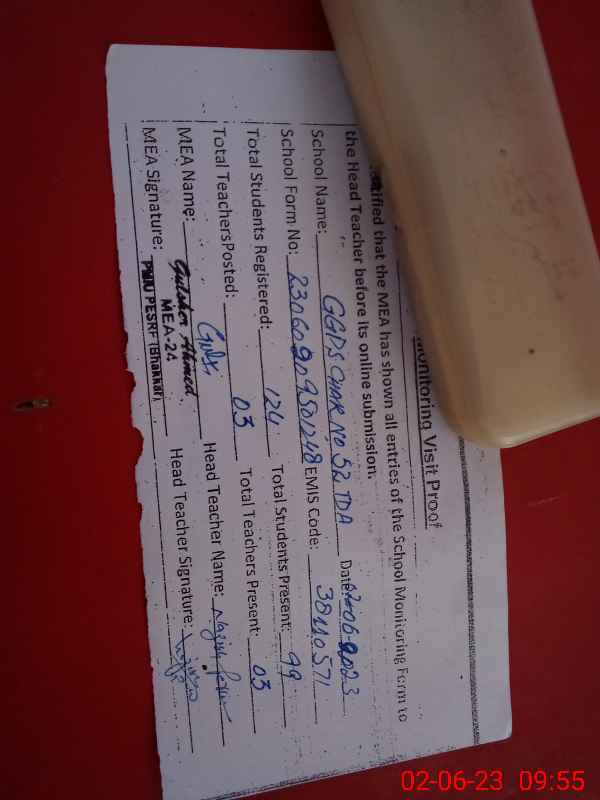 Monitoring Visit Proof
tified that the MEA has shown all entries of the School Monitoring Form to
the Head Teacher before its online submission.
School Name: GGPS CHAK NO 52 TDA Date: 02-06-2023
School Form No: 23060209501248 EMIS Code: 38110571
Total Students Registered: 124 Total Students Present: 99
Total Teachers Posted: 03 Total Teachers Present: 03
MEA Name: Head Teacher Name:
MEA Signature: Gulsher Ahmed Head Teacher Signature:
MEA-24
PMIU PESRP (Bhakkar)
02-06-23 09:55